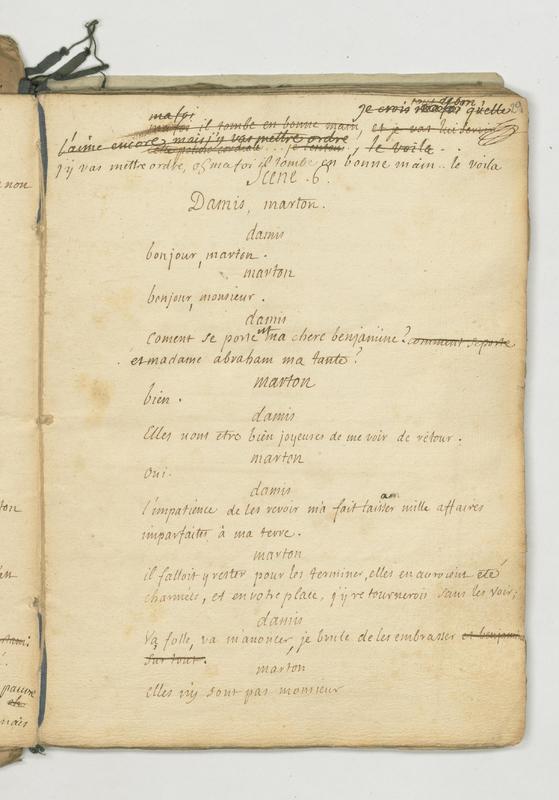 29
tout de bon
ma foi je crois ma foi qu'elle
ma foi il tombe en bonne main, et je vas lui
l'aime encore, mais j'y vas mettre ordre
le voila
j'y vas mettre ordre, ma foi il tombe en bonne main.. le voila
Scene .6.
Damis, marton.
damis
bonjour, marton.
marton
bonjour, monsieur.
damis
Coment se portent ma chere benjamine? comment se porte
et madame abraham ma tante?
marton
bien.
damis
Elles vont etre bien joyeuses de me voir de retour.
marton
oui.
damis
l'impatience de les revoir m'a fait laisser mille affaires
imparfaites à ma terre.
marton
il falloit y rester pour les terminer, elles en auroient été
charmées, et en votre place, j'y retournerois sans les voir;
damis
va folle, va m'anoncer, je brule de les embrasser et benjamine
sur tout.
marton
elles n'y sont pas monsieur
non
ton
en
pauvre
mais